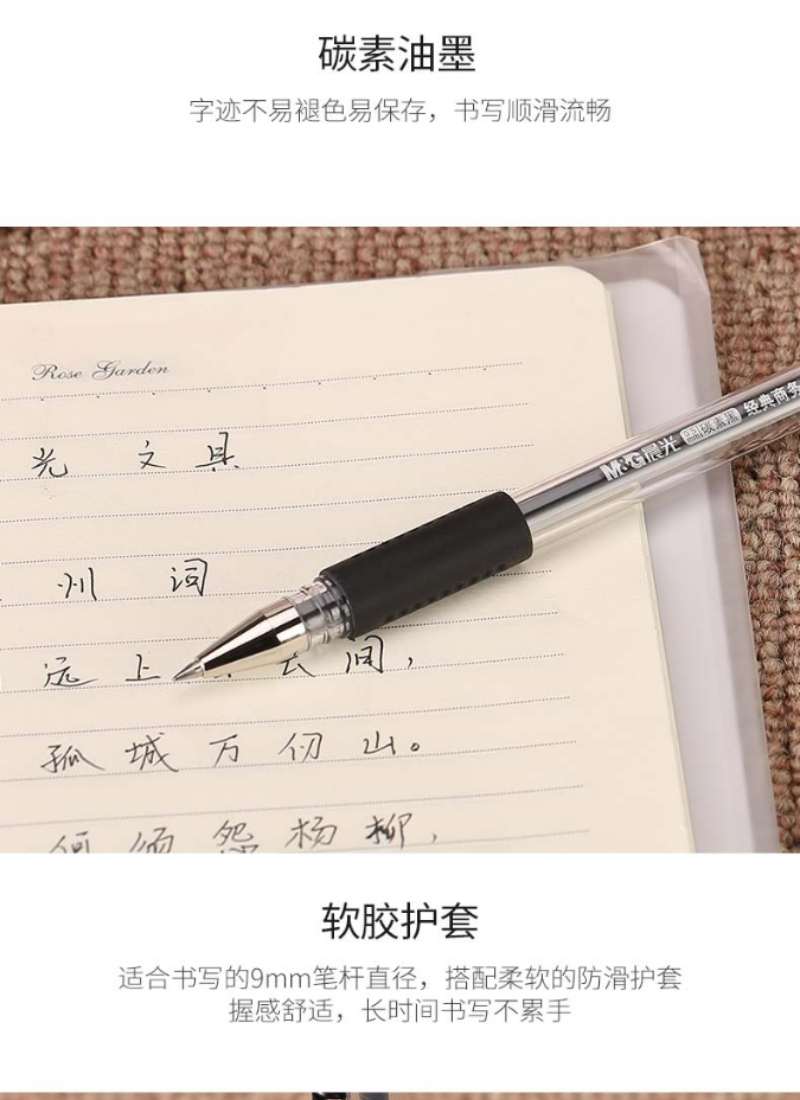 碳素油墨
字迹不易褪色易保存，书写顺滑流畅
Rose Garden
光 文 具
M&G晨光 碳素黑 经典商务
州 词
远 上 云 间，
孤 城 万 仞 山。
何 须 怨 杨 柳，
软胶护套
适合书写的9mm笔杆直径，搭配柔软的防滑护套
握感舒适，长时间书写不累手